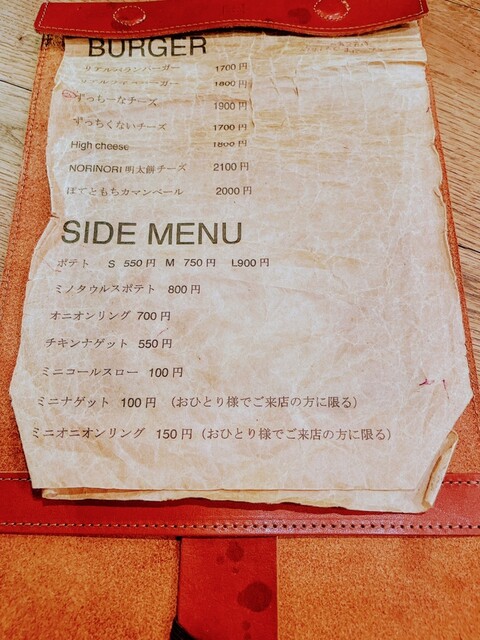 BURGER
リアルバランバーガー 1700円
バーガー 1800円
ずっちーなチーズ 1900円
ずっちくないチーズ 1700円
High cheese 1800円
NORINORI 明太餅チーズ 2100円
ぽてともちカマンベール 2000円
SIDE MENU
ポテト S 550円 M 750円 L900円
ミノタウルスポテト 800円
オニオンリング 700円
チキンナゲット 550円
ミニコールスロー 100円
ミニナゲット 100円 （おひとり様でご来店の方に限る）
ミニオニオンリング 150円（おひとり様でご来店の方に限る）